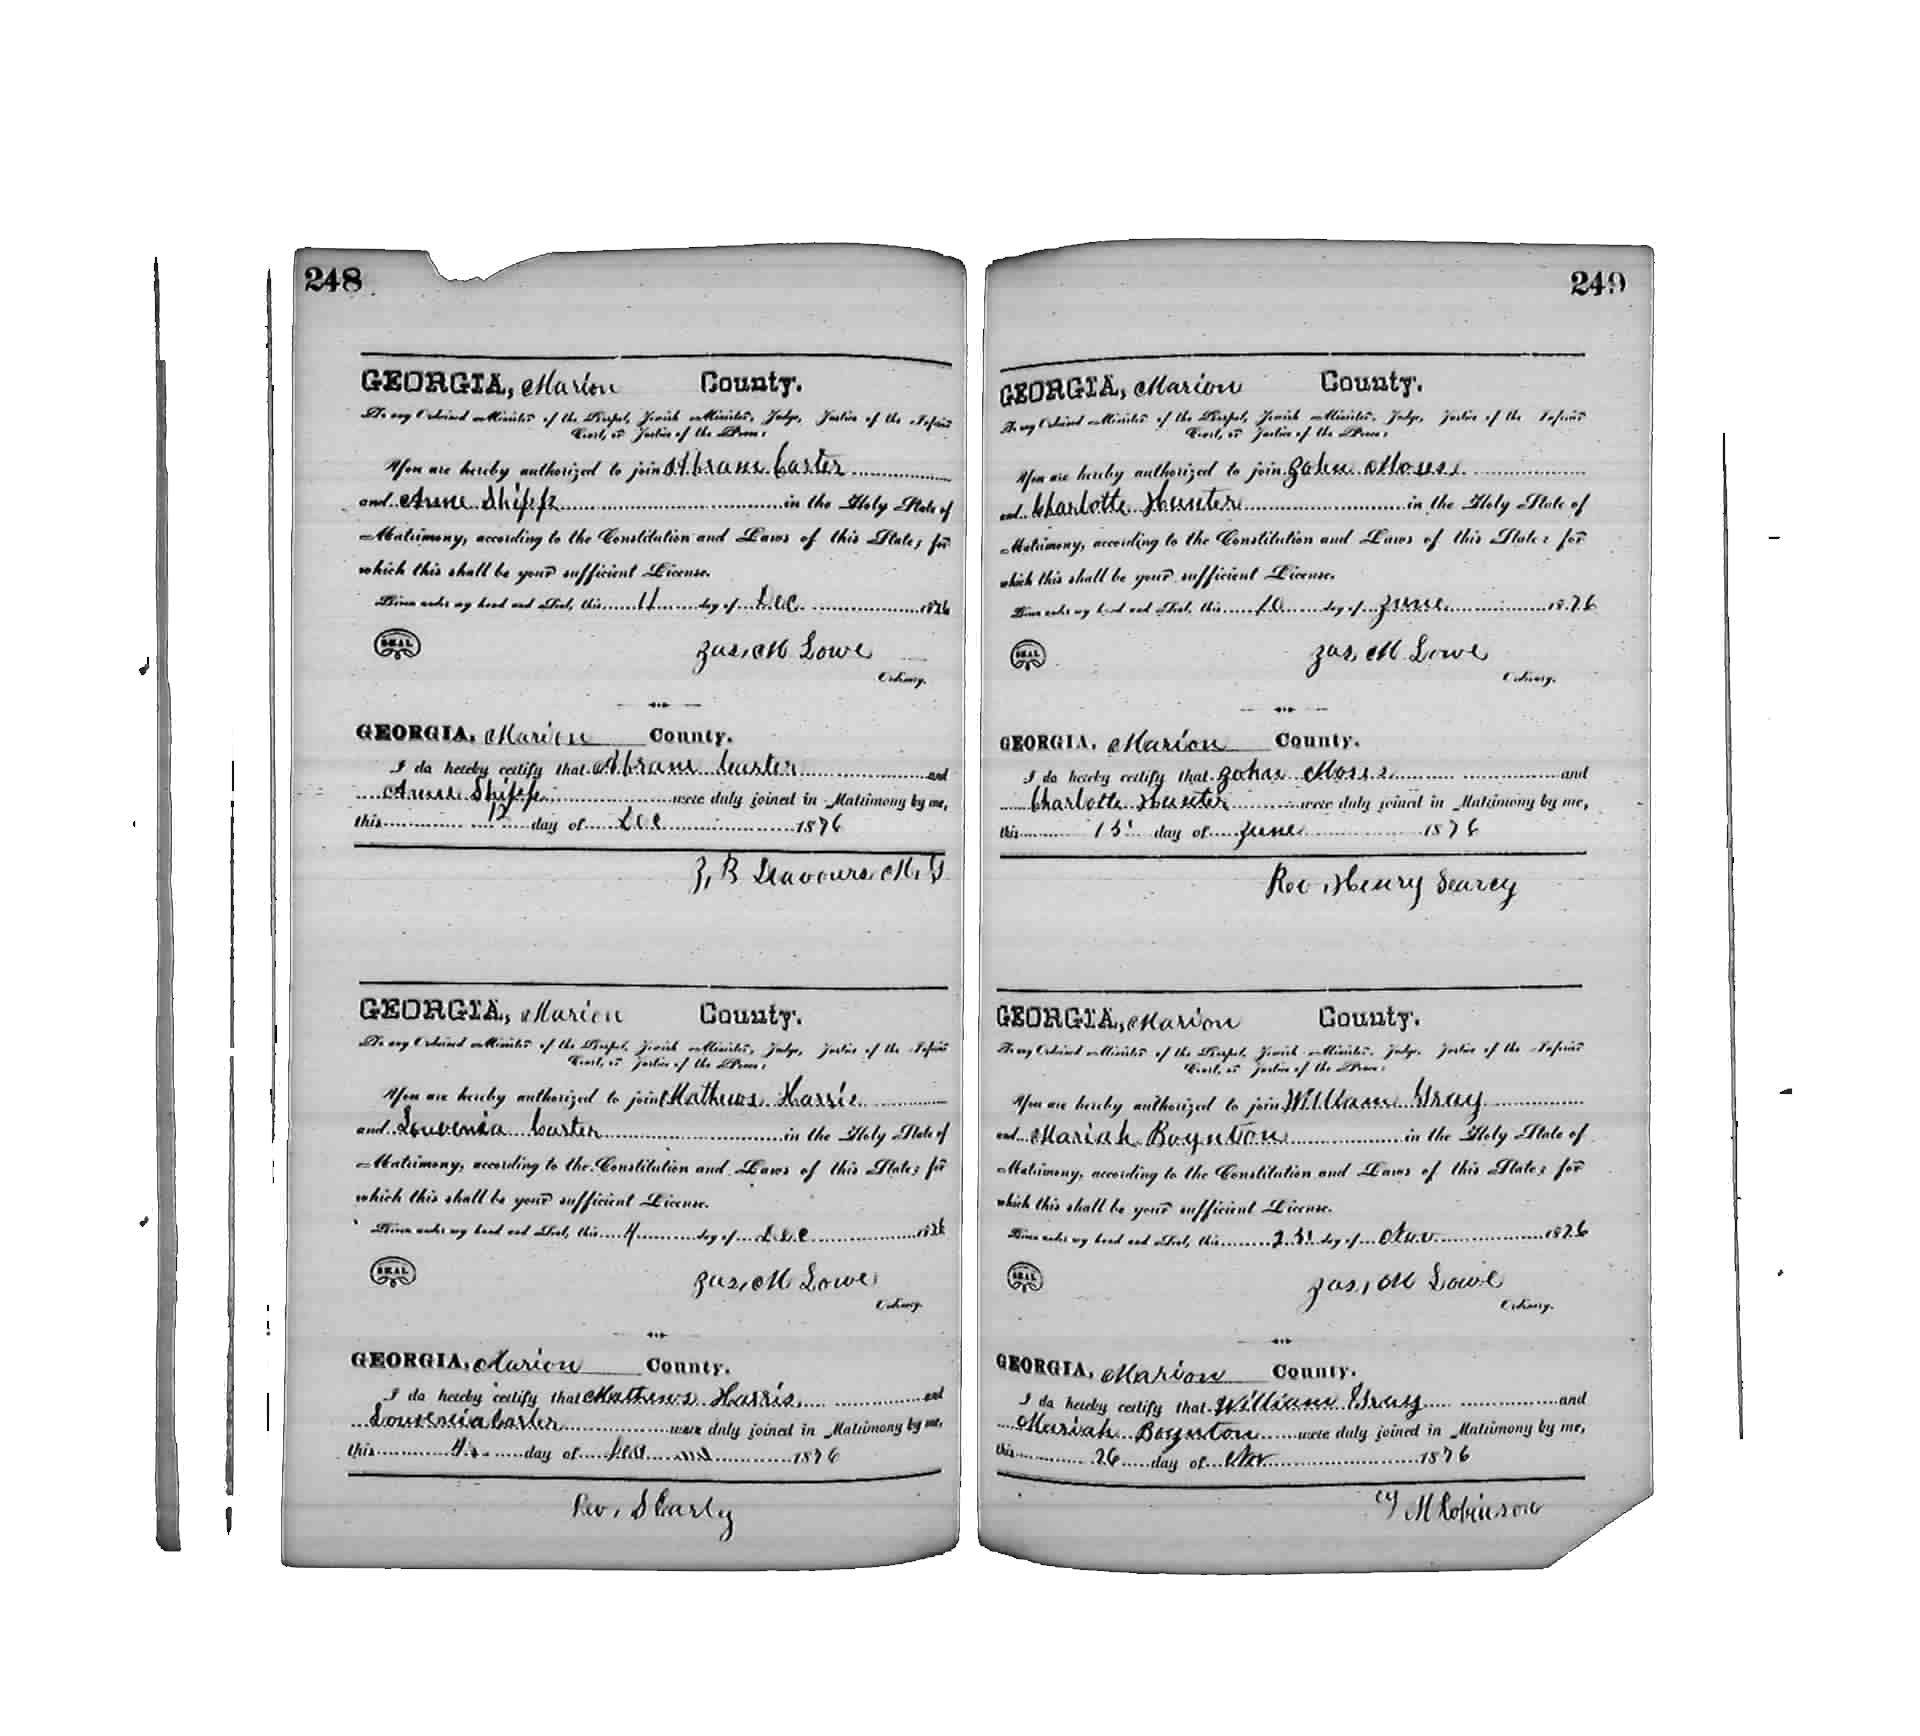 248
GEORGIA, Marion County.
To any Ordained Minister of the Gospel, Jewish Minister, Judge, Justice of the Inferior
Court, or Justice of the Peace:
You are hereby authorized to join Abram Carter
and Anne Shipp in the Holy State of
Matrimony, according to the Constitution and Laws of this State; for
which this shall be your sufficient License.
Given under my hand and Seal, this 11 day of Dec 1876
SEAL
Jas, M Lowe
Ordinary.
GEORGIA, Marion County.
I do hereby certify that Abram Carter and
Anne Shipp were duly joined in Matrimony by me,
this 12 day of Dec 1876
J, B Deavours M, G
GEORGIA, Marion County.
To any Ordained Minister of the Gospel, Jewish Minister, Judge, Justice of the Inferior
Court, or Justice of the Peace:
You are hereby authorized to join Mathews Harris
and Louvenia Carter in the Holy State of
Matrimony, according to the Constitution and Laws of this State; for
which this shall be your sufficient License.
Given under my hand and Seal, this 4 day of Dec 1876
SEAL
Jas, M Lowe
Ordinary.
GEORGIA, Marion County.
I do hereby certify that Mathews Harris and
Louvenia Carter were duly joined in Matrimony by me,
this day of 1876
Rev, S Early
249
GEORGIA, Marion County.
To any Ordained Minister of the Gospel, Jewish Minister, Judge, Justice of the Inferior
Court, or Justice of the Peace:
You are hereby authorized to join John Moses
and Charlotte Hunter in the Holy State of
Matrimony, according to the Constitution and Laws of this State: for
which this shall be your sufficient License.
Given under my hand and Seal, this 10 day of June 1876
SEAL
Jas, M Lowe
Ordinary.
GEORGIA, Marion County.
I do hereby certify that John Moses and
Charlotte Hunter were duly joined in Matrimony by me,
this 15 day of June 1876
Rev, Henry Searcy
GEORGIA, Marion County.
To any Ordained Minister of the Gospel, Jewish Minister, Judge, Justice of the Inferior
Court, or Justice of the Peace:
You are hereby authorized to join William Gray
and Mariah Boynton in the Holy State of
Matrimony, according to the Constitution and Laws of this State; for
which this shall be your sufficient License.
Given under my hand and Seal, this 25 day of Nov 1876
SEAL
Jas, M Lowe
Ordinary.
GEORGIA, Marion County.
I do hereby certify that William Gray and
Mariah Boynton were duly joined in Matrimony by me,
this 26 day of Nov 1876
M Robinson